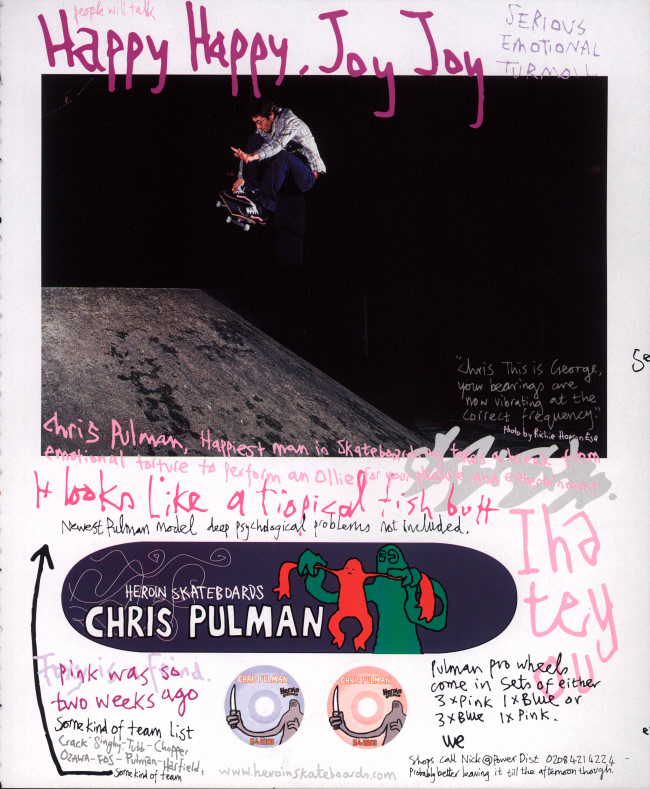 people will talk
Happy Happy, Joy Joy
SERIOUS
EMOTIONAL
TURMOIL
"Chris This is George,
your bearings are
now vibrating at the
correct frequency"
Photo by Richie Hopson Esq
Chris Pulman, Happiest man in Skateboarding takes a break from
emotional torture to perform an Ollie. For your pleasure and entertainment.
It looks like a tropical fish butt
Newest Pulman model deep psychological problems not included.
I ha
te y
ou
HEROIN SKATEBOARDS
CHRIS PULMAN
Pink was so
two weeks ago
Some kind of team list
Crack-Singhy-Tubb-Chopper
Ozawa-Fos-Pulman-Harfield,
Some kind of team
CHRIS PULMAN
Heroin
54mm
CHRIS PULMAN
Heroin
54mm
www.heroinskateboards.com
Pulman pro wheels
come in sets of either
3xPink 1xBlue or
3xBlue 1xPink.
we
Shops call Nick@Power Dist 0208 421 4224
Probably better leaving it till the afternoon though.
Se